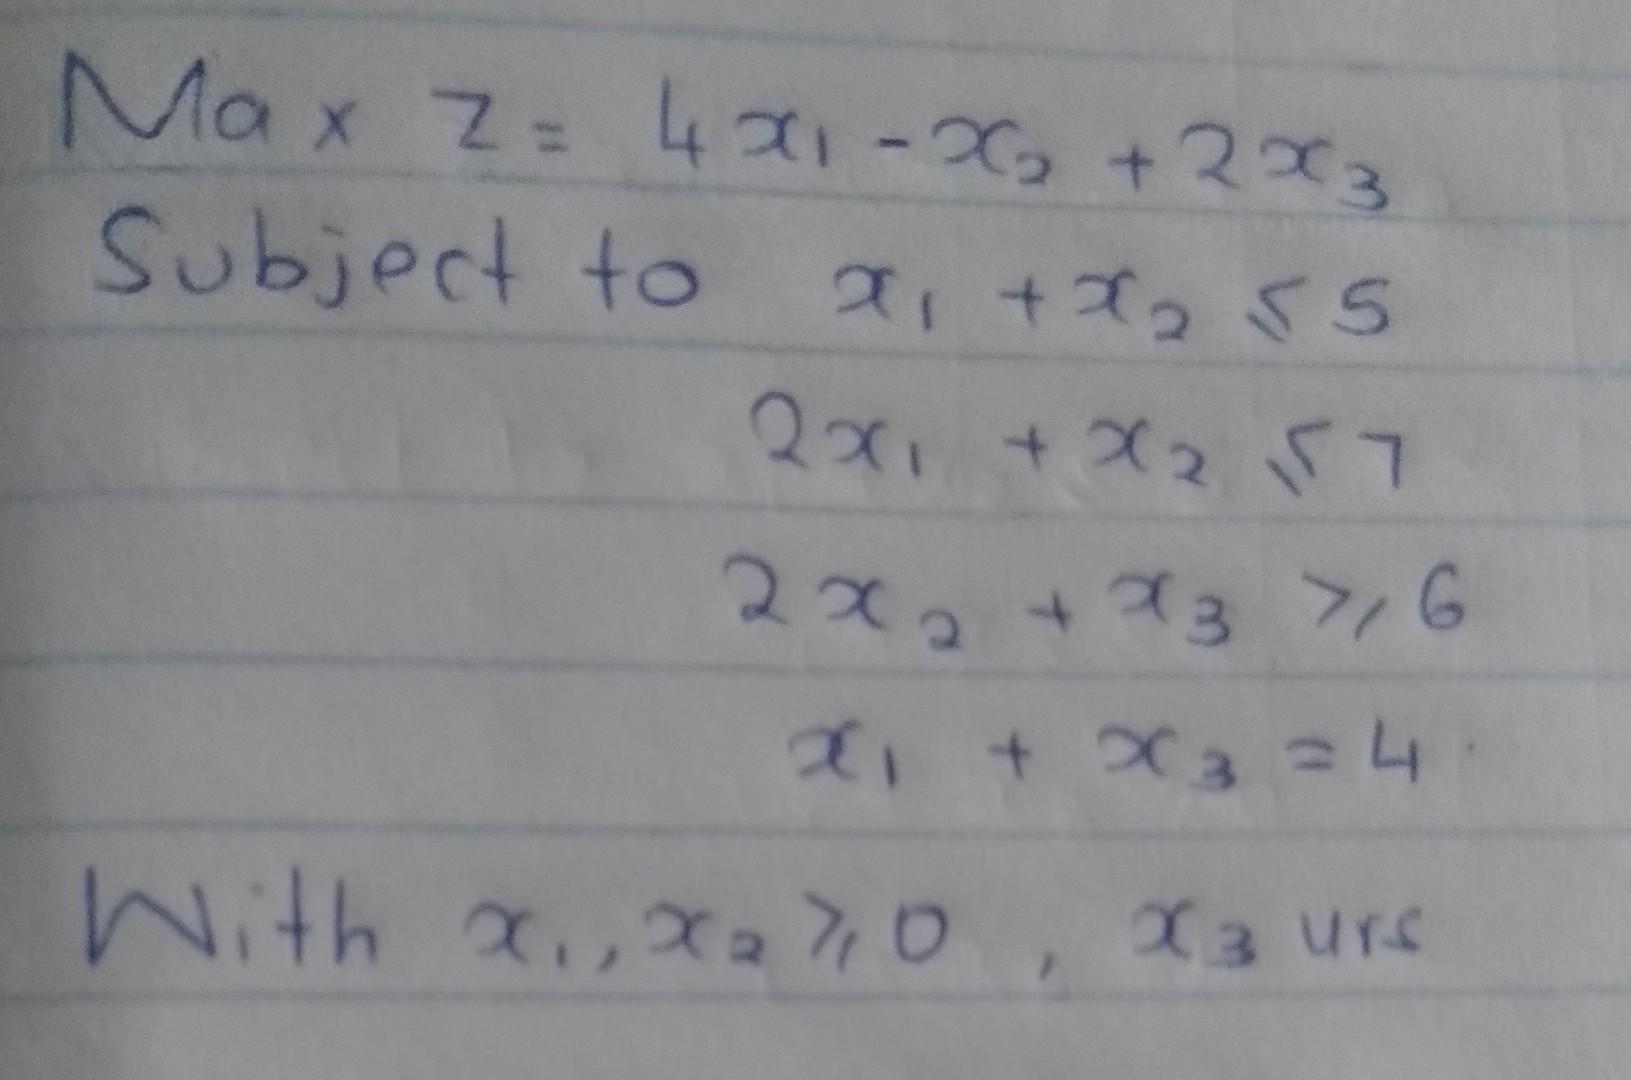 Max Z = 4x₁ - x₂ + 2x₃
Subject to x₁ + x₂ ≤ 5
2x₁ + x₂ ≤ 7
2x₂ + x₃ ≥ 6
x₁ + x₃ = 4
With x₁, x₂ ≥ 0, x₃ urs